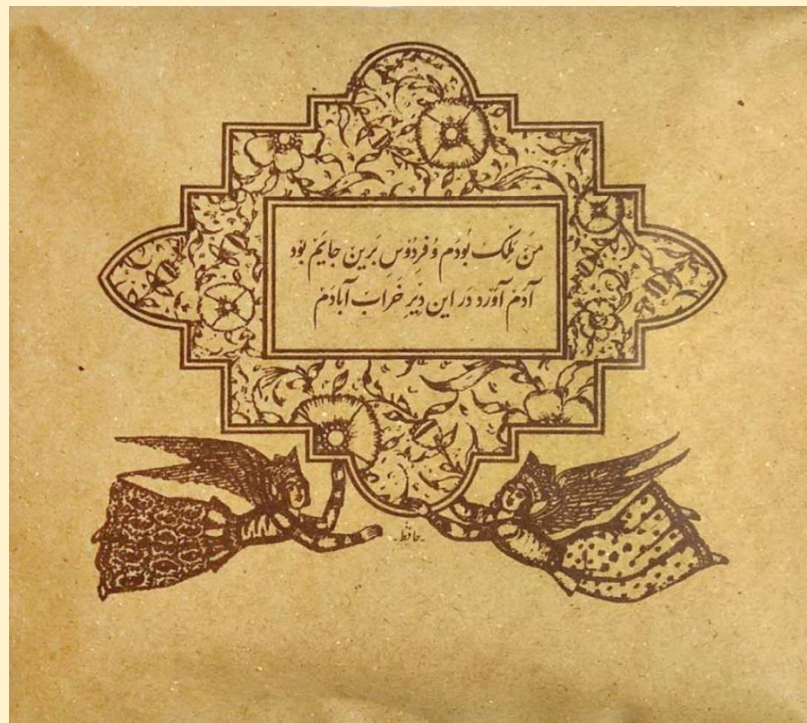 مَنْ مَلَکْ بُودَم و فِردُوسِ بَرین جایَم بُود
آدَمْ آوَرد دَر این دِیْرِ خَراب آبادَمْ
-حافظ-